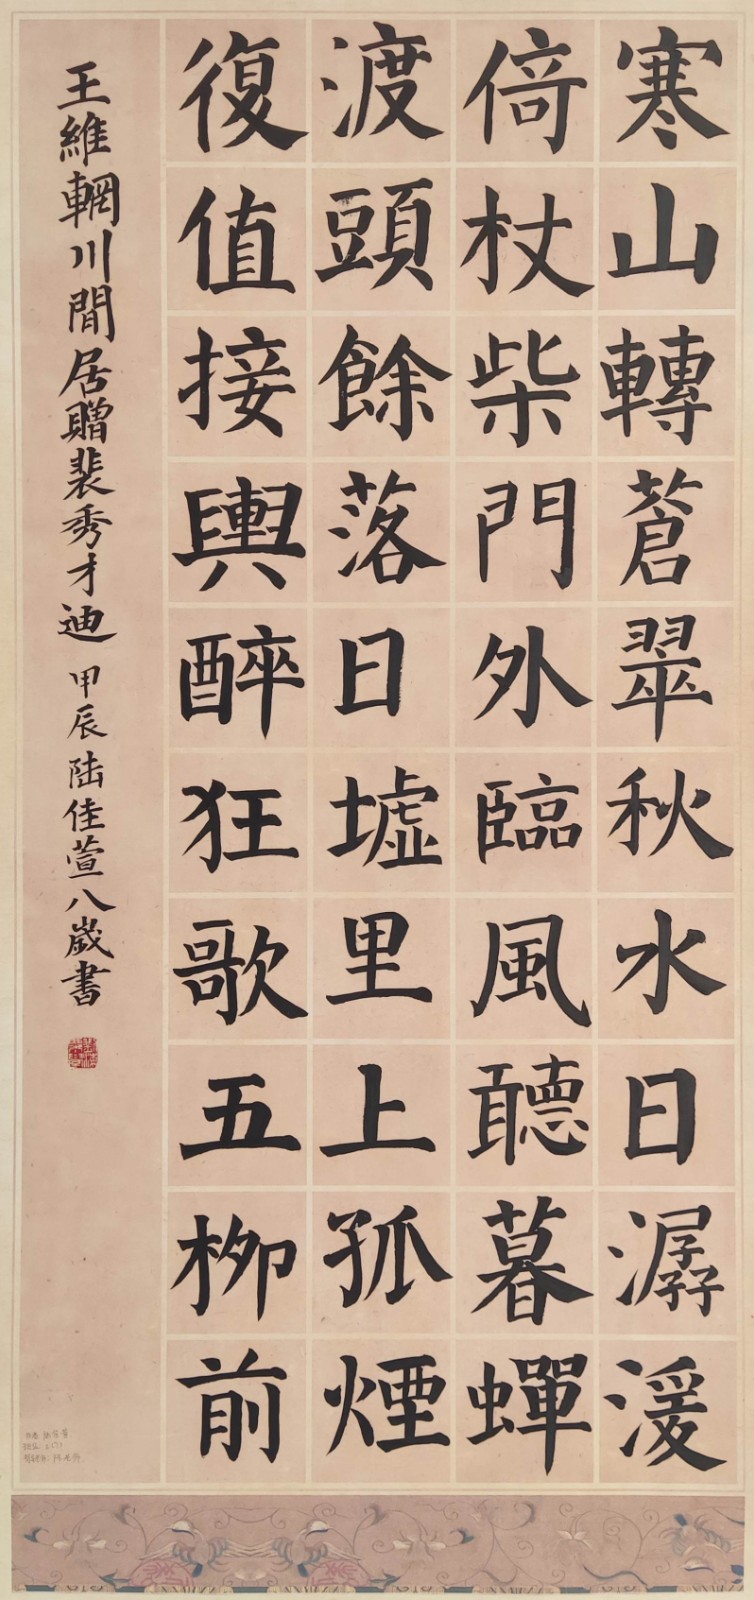 寒山轉蒼翠秋水日潺湲
倚杖柴門外臨風聽暮蟬
渡頭餘落日墟里上孤煙
復值接輿醉狂歌五柳前
王維輞川閒居贈裴秀才迪 甲辰 陆佳萱八歲書